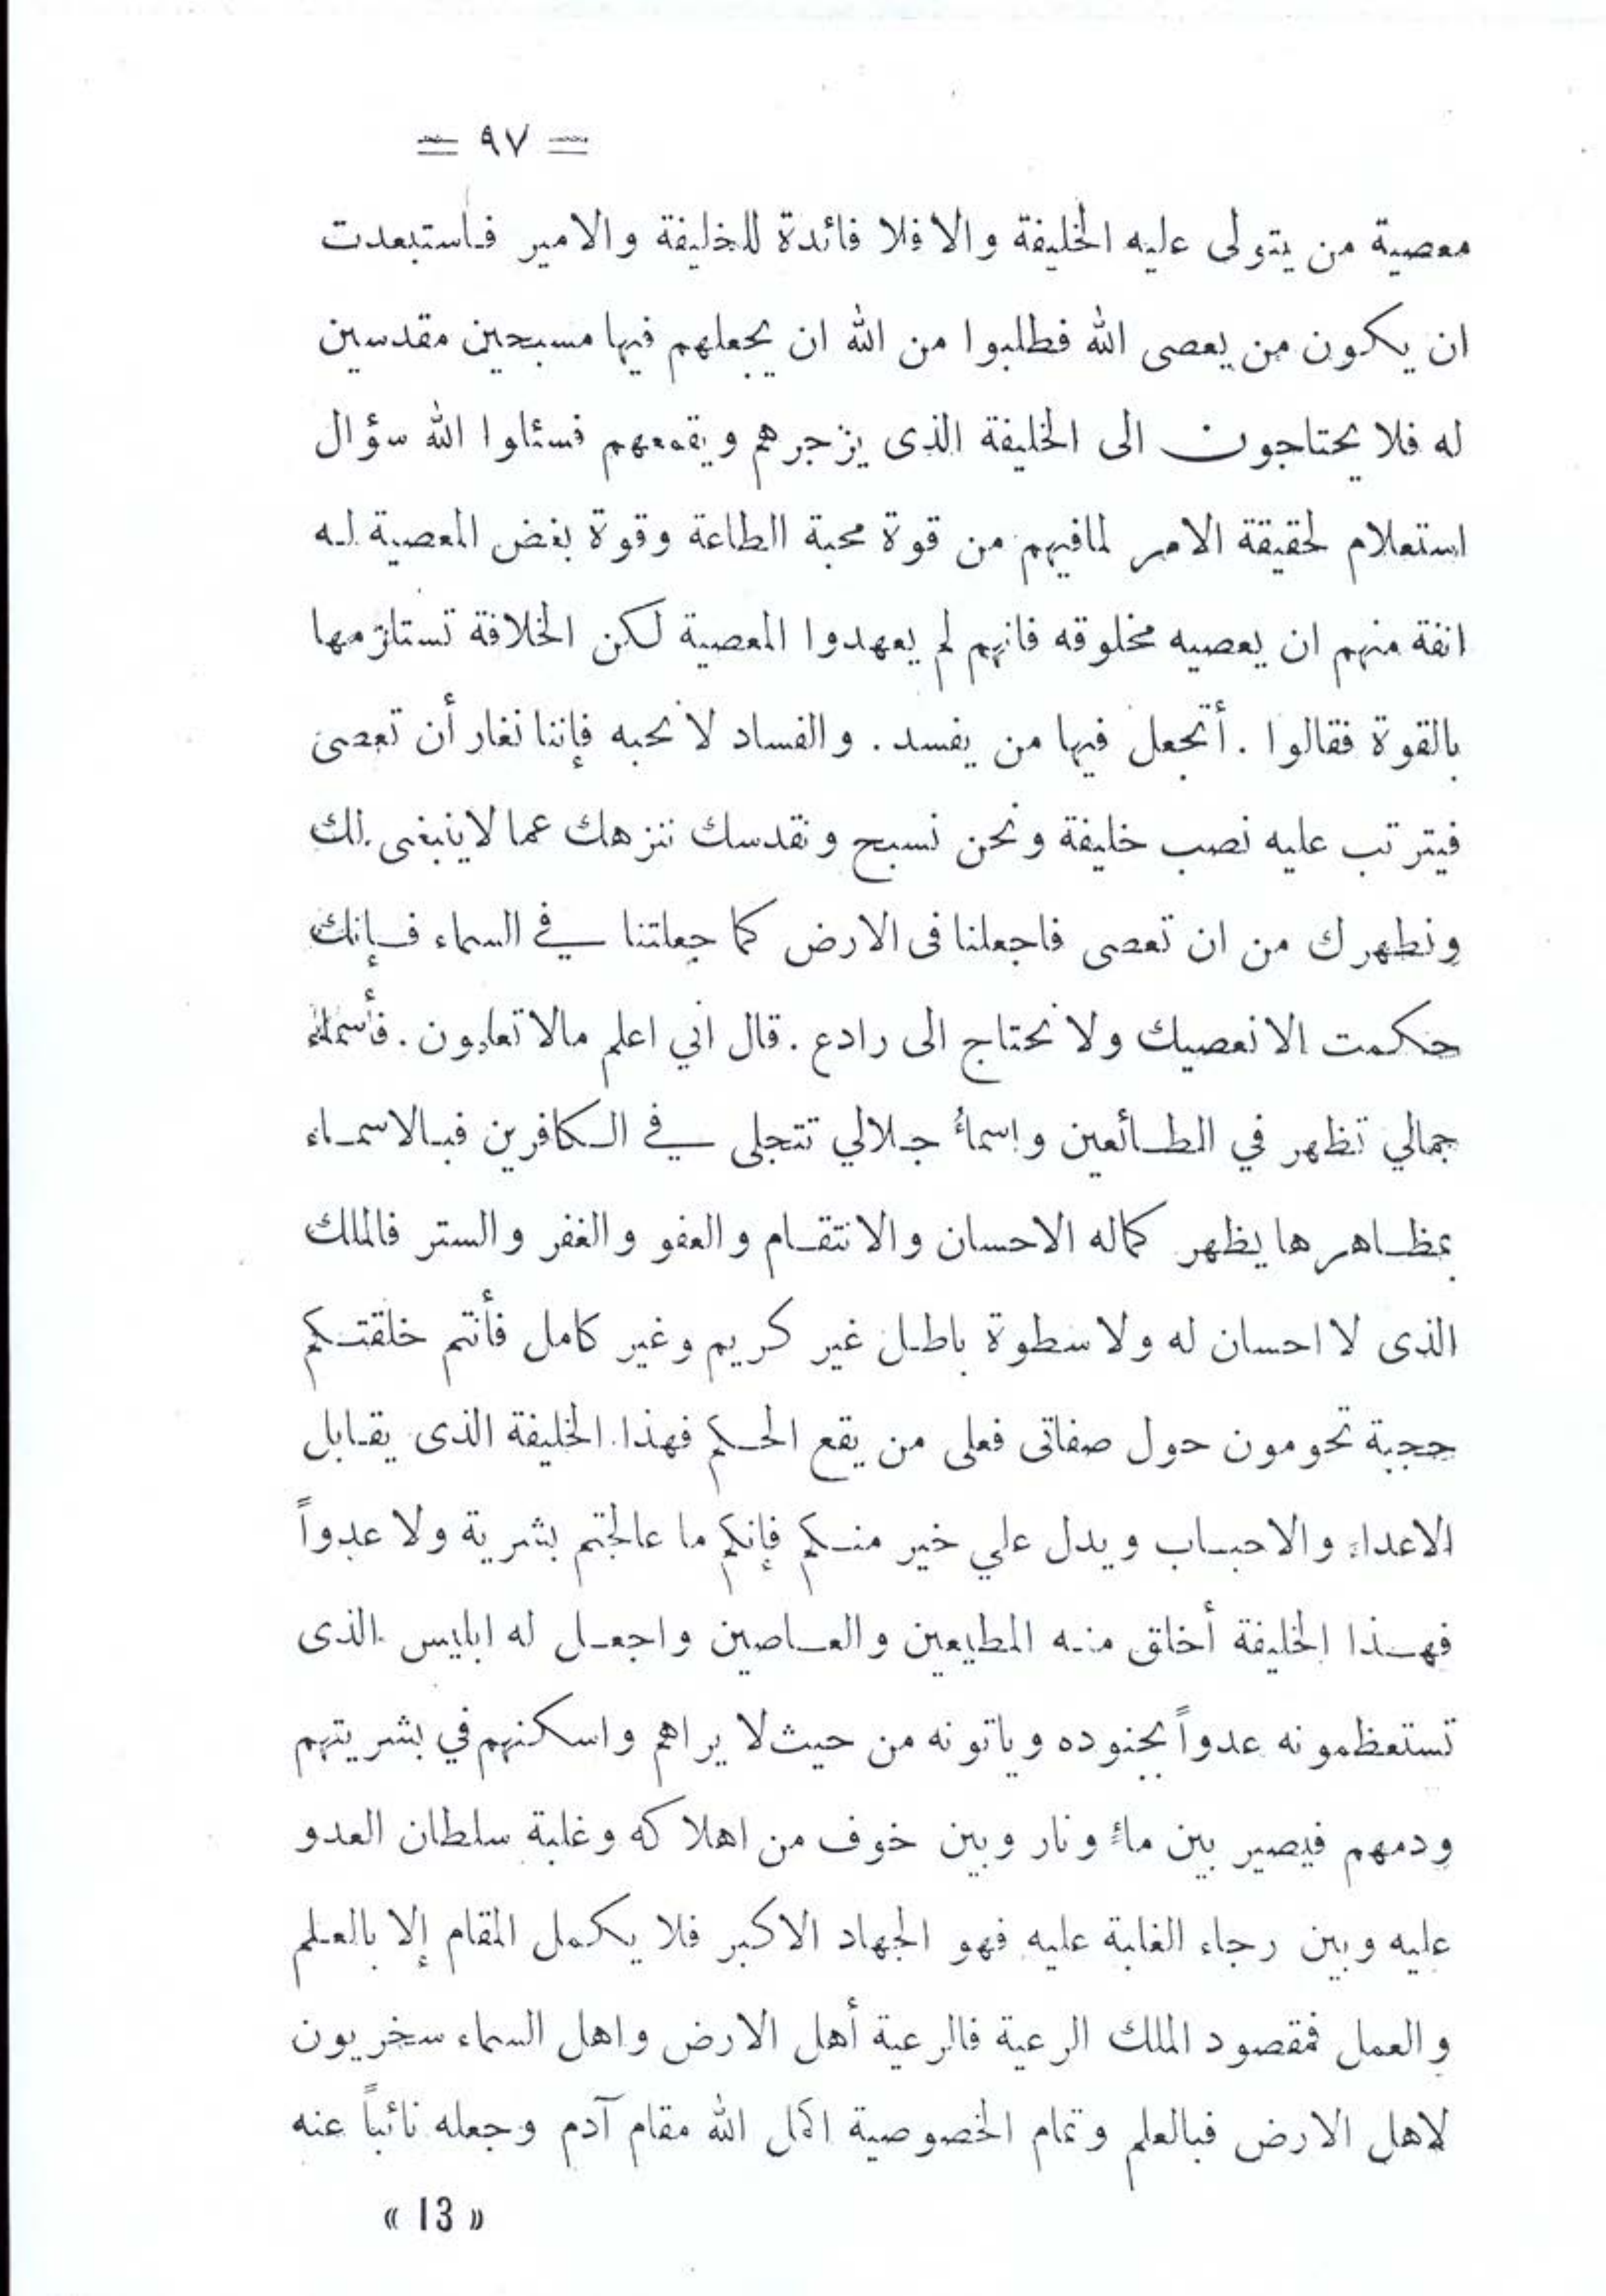 = ٩٧ =
معصية من يتولى عليه الخليفة والا فلا فائدة للخليفة والامير فاستبعدت
ان يكون من يعصى الله فطلبوا من الله ان يجعلهم فيها مسبحين مقدسين
له فلا يحتاجون الى الخليفة الذى يزجرهم ويقمعهم فسئلوا الله سؤال
استعلام لحقيقة الامر لمافيهم من قوة محبة الطاعة وقوة بغض المعصية له
انفة منهم ان يعصيه مخلوقه فانهم لم يعهدوا المعصية لكن الخلافة تستلزمها
بالقوة فقالوا . أتجعل فيها من يفسد . والفساد لا نحبه فإننا نغار أن تعصى
فيترتب عليه نصب خليفة ونحن نسبح ونقدسك ننزهك عما لاينبغى لك
ونطهرك من ان تعصى فاجعلنا فى الارض كما جعلتنا في السماء فإنك
حكمت الا نعصيك ولا نحتاج الى رادع . قال اني اعلم مالا تعلمون . فأسماء
جمالي تظهر في الطائعين واسماءُ جلالي تتجلى في الكافرين فبالاسماء
بمظاهرها يظهر كماله الاحسان والانتقام والعفو والغفر والستر فالملك
الذى لا احسان له ولا سطوة باطل غير كريم وغير كامل فأنتم خلقتكم
حجبة تحومون حول صفاتى فعلى من يقع الحكم فهذا الخليفة الذى يقابل
الاعداء والاحباب ويدل علي خير منكم فإنكم ما عالجتم بشرية ولا عدواً
فهذا الخليفة أخلق منه المطيعين والعاصين واجعل له ابليس الذى
تستعظمونه عدواً بجنوده وياتونه من حيث لا يراهم واسكنهم في بشريتهم
ودمهم فيصير بين ماءٍ ونار وبين خوف من اهلاكه وغلبة سلطان العدو
عليه وبين رجاء الغلبة عليه فهو الجهاد الاكبر فلا يكمل المقام إلا بالعلم
والعمل فمقصود الملك الرعية فالرعية أهل الارض واهل السماء سخريون
لاهل الارض فبالعلم وتمام الخصوصية اكمل الله مقام آدم وجعله نائباً عنه
« 13 »